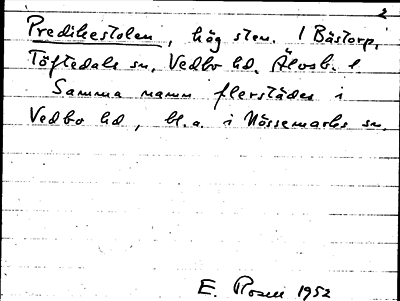 2
Predikestolen, hög sten. / Båstorp,
Töftedals sn, Vedbo hd, Älvsb. l
Samma namn flerstädes i
Vedbo hd, bl.a. i Nössemarks sn.
E. Rosell 1952